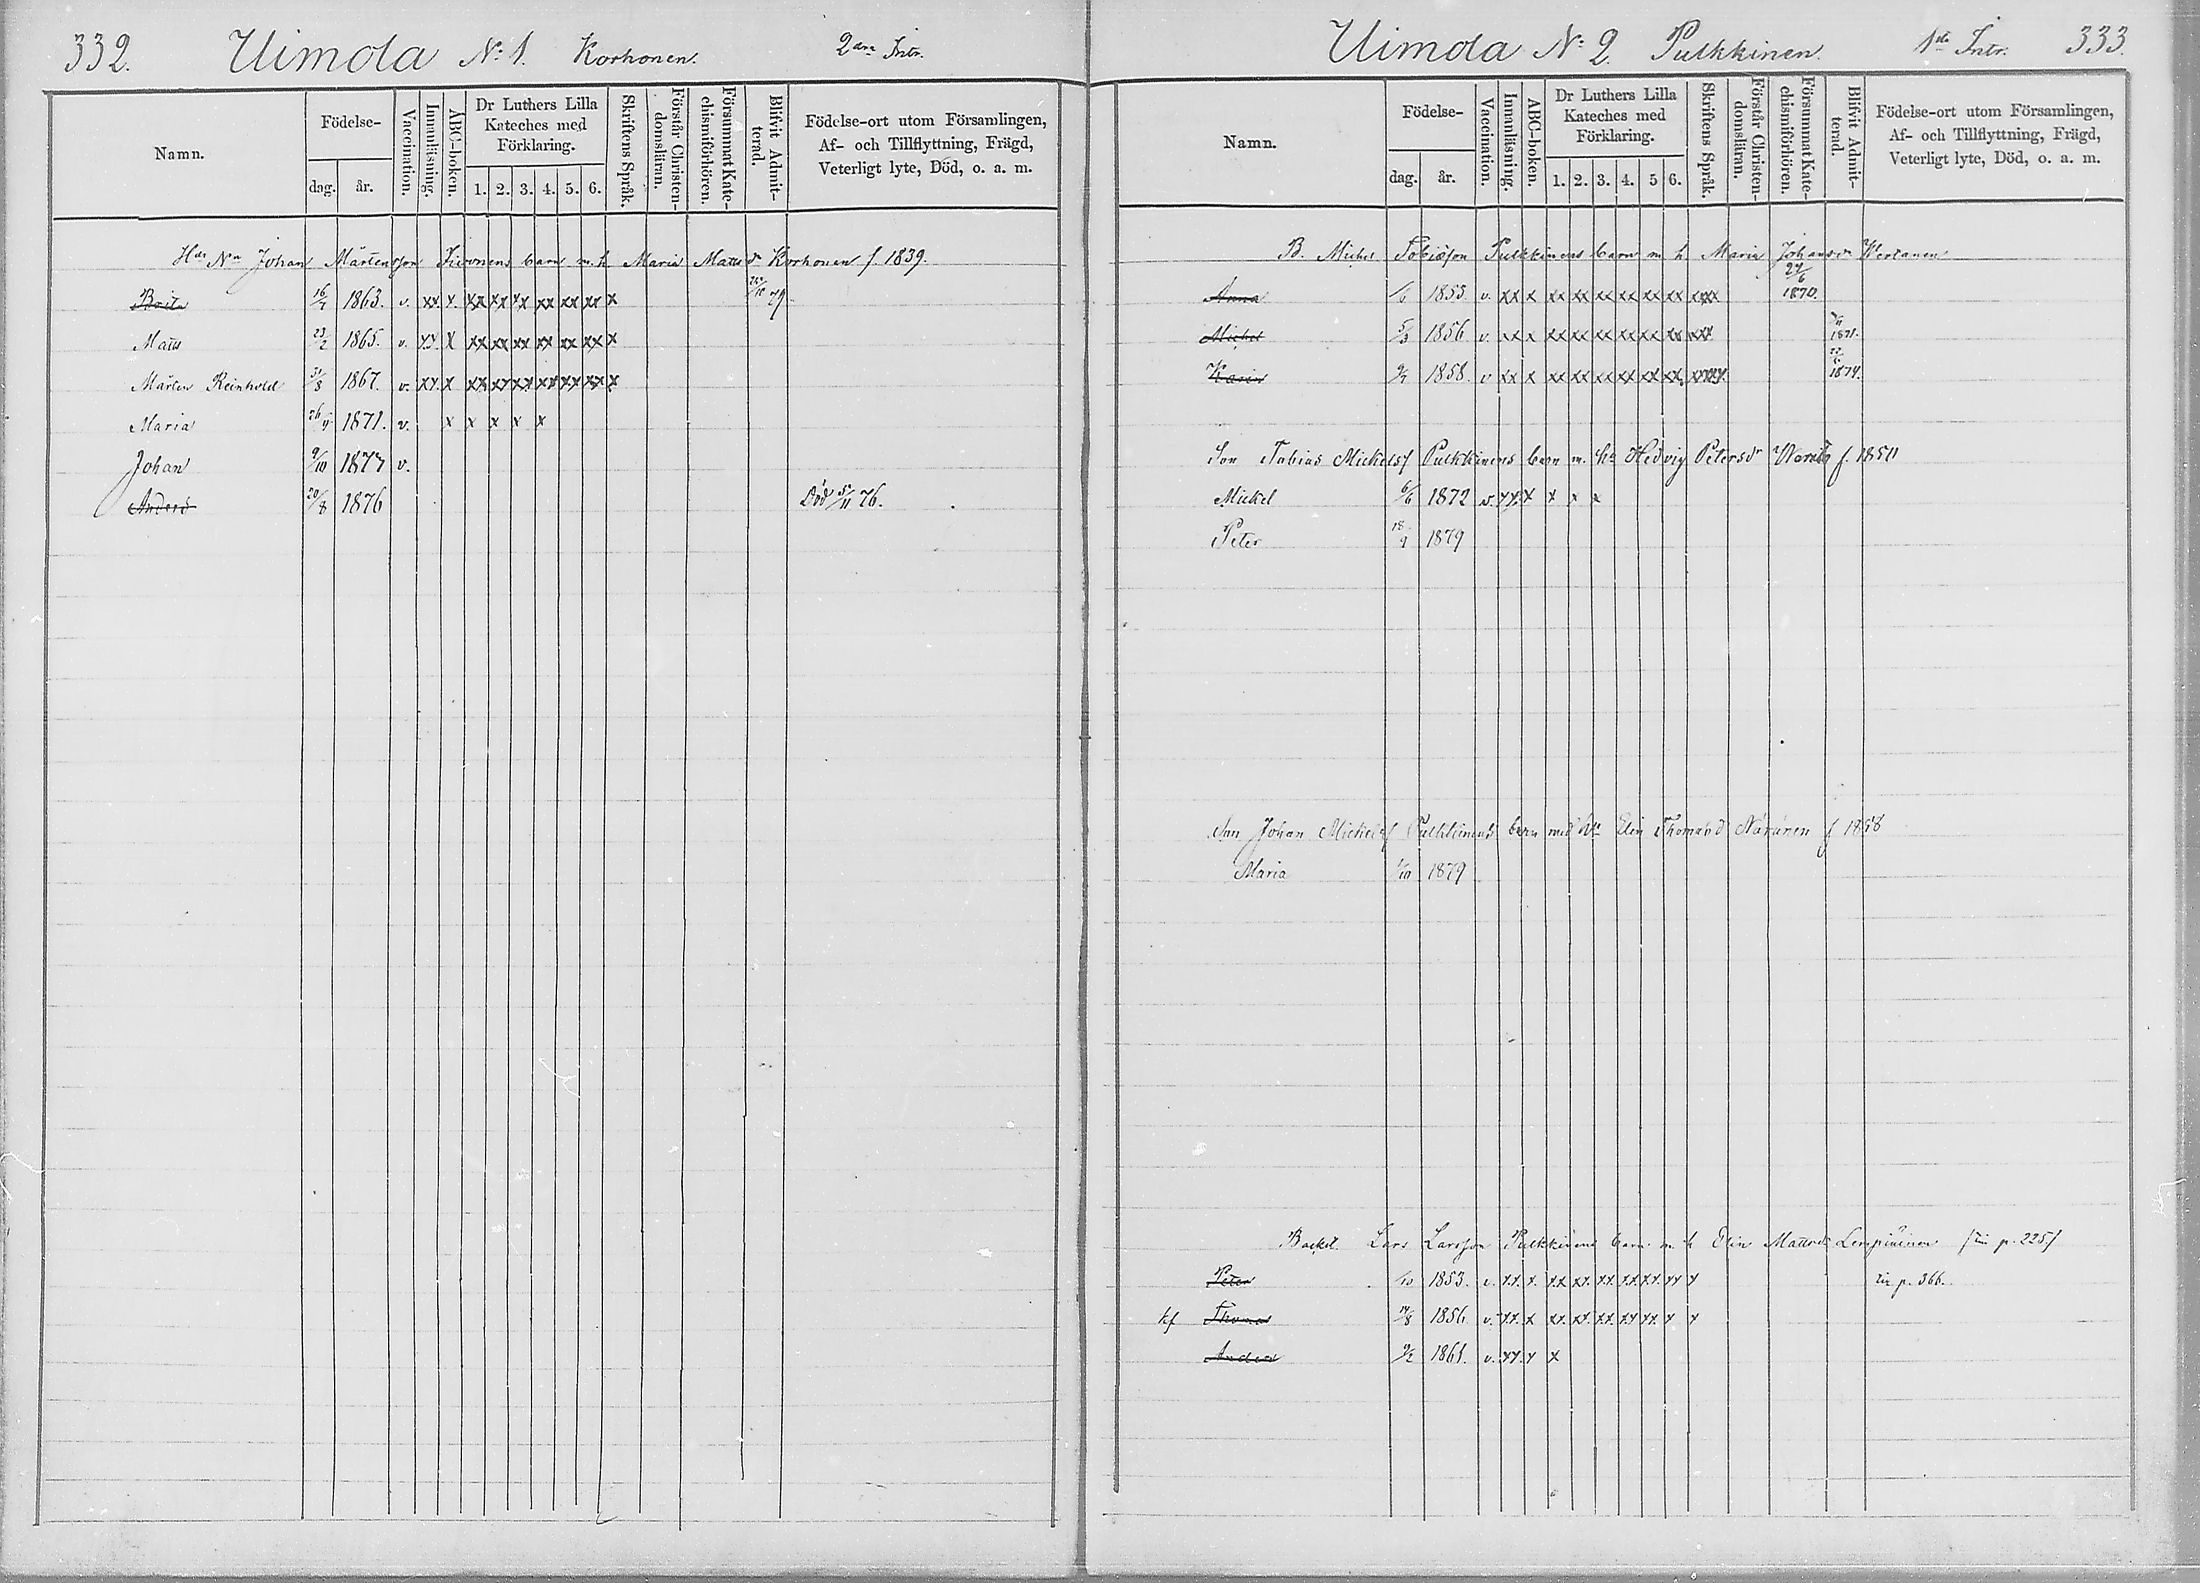 332. Uimola No 1. Korhonen. 2dra Intr.
Namn.
Födelse-
dag. år.
Vaccination.
Innanläsning.
ABC-boken.
Dr Luthers Lilla
Kateches med
Förklaring.
1. 2. 3. 4. 5. 6.
Skriftens Språk.
Förstår Christen-
domsläran.
Försummat Kate-
chismiförhören.
Blifvit Admit-
terad.
Födelse-ort utom Församlingen,
Af- och Tillflyttning, Frägd,
Veterligt lyte, Död, o. a. m.
Johan Mårtensson barn m. h. Maria Matts dr Korhonen f. 1839.
Brita 1863. v. xx x xx xx xx xx xx xx x 79
Matts 23/2 1865. v. xx x xx xx xx xx xx xx x
Mårten Reinhold 31/8 1867. v. xx x xx xx xx xx xx xx x
Maria 1871. v. x x x x x
Johan 9/10 1877 v.
Anders 20/8 1876 Död 76.
Uimola No 2 Pulkkinen. 1sta Intr. 333.
Namn.
Födelse-
dag. år.
Vaccination.
Innanläsning.
ABC-boken.
Dr Luthers Lilla
Kateches med
Förklaring.
1. 2. 3. 4. 5 6.
Skriftens Språk.
Förstår Christen-
domsläran.
Försummat Kate-
chismiförhören.
Blifvit Admit-
terad.
Födelse-ort utom Församlingen,
Af- och Tillflyttning, Frägd,
Veterligt lyte, Död, o. a. m.
B. Michel Tobiasson Pulkkinens barn m. h. Maria Johansdr Wertanen
Anna 1853. v. xx x xx xx xx xx xx xx xxx 24/6 1870.
Michel 5/3 1856 v. xx x xx xx xx xx xx xx xxx 1871.
Karin 1858. v xx x xx xx xx xx xx xx 1874.
Son Tobias Mickelsf Pulkkinens barn m. hu Hedvig Petersdr f. 1850
Mickel 6/6 1872 v. xx x x x x
Peter 18/9 1879
Son Johan Mickelsf Pulkkinens barn med hu Elin Thomasd f 1858
Maria 1/10 1879
Lars Larsson Pulkkinens barn m. h Elin Mattsdr Lempiäinen p. 225
Peter 1853. v. xx. x. xx xx. xx. xx. xx. xx x p. 366.
kf Thomas 14/8 1856. v. xx. x xx. xx. xx. xx xx. x x
Anders 9/2 1861. v. xx. x x